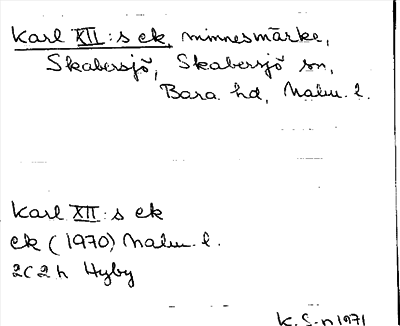 Karl XII:s ek, minnesmärke,
Skabersjö, Skabersjö sn,
Bara hd, Malm. l.
Karl XII:s ek
ek (1970) Malm. l.
2C 2h Hyby
K.S-n 1971